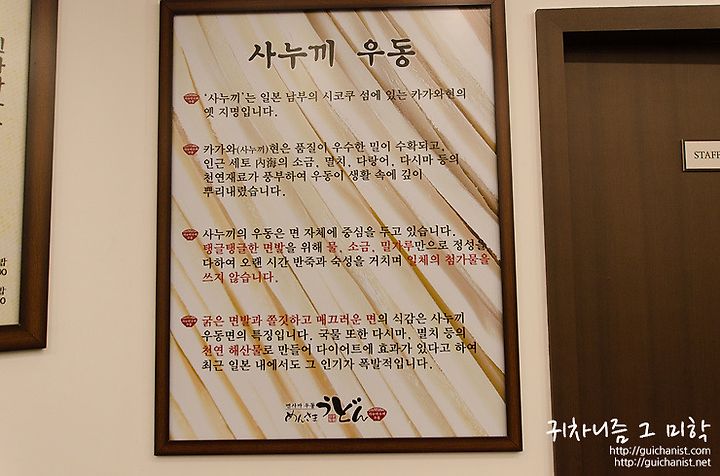 사누끼 우동
'사누끼'는 일본 남부의 시코쿠 섬에 있는 카가와현의
옛 지명입니다.
카가와(사누끼)현은 품질이 우수한 밀이 수확되고,
인근 세토 內海의 소금, 멸치, 다랑어, 다시마 등의
천연재료가 풍부하여 우동이 생활 속에 깊이
뿌리내렸습니다.
사누끼의 우동은 면 자체에 중심을 두고 있습니다.
탱글탱글한 면발을 위해 물, 소금, 밀가루만으로 정성을
다하여 오랜 시간 반죽과 숙성을 거치며 일체의 첨가물을
쓰지 않습니다.
굵은 면발과 쫄깃하고 매끄러운 면의 식감은 사누끼
우동면의 특징입니다. 국물 또한 다시마, 멸치 등의
천연 해산물로 만들어 다이어트에 효과가 있다고 하여
최근 일본 내에서도 그 인기가 폭발적입니다.
めんさま うどん
STAFF
귀차니즘 그 미학
http://guichanist.com/
http://guichanist.net